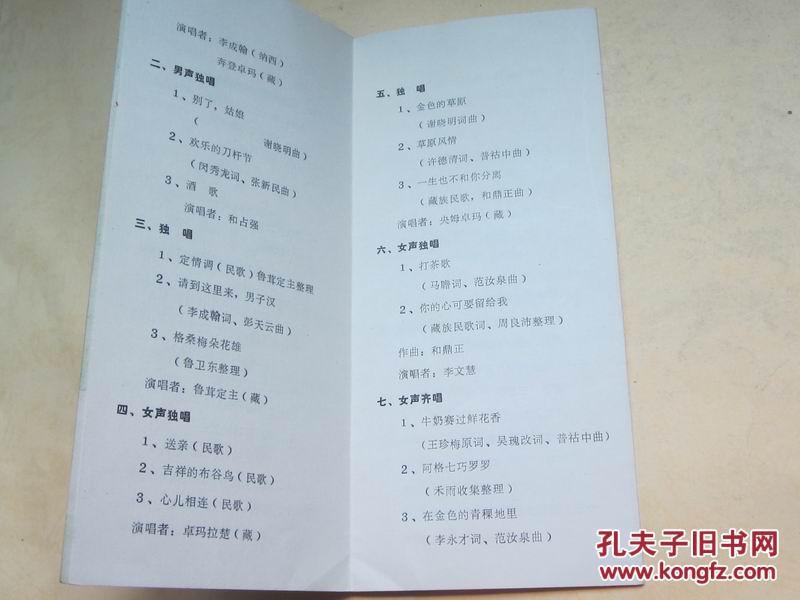 演唱者：李成翰（纳西）
奔登卓玛（藏）
二、男声独唱
1、别了，姑娘
（　　　谢晓明曲）
2、欢乐的刀杆节
（闵秀龙词、张新民曲）
3、酒　歌
演唱者：和占强
三、独　唱
1、定情调（民歌）鲁茸定主整理
2、请到这里来，男子汉
（李成翰词、彭天云曲）
3、格桑梅朵花雄
（鲁卫东整理）
演唱者：鲁茸定主（藏）
四、女声独唱
1、送亲（民歌）
2、吉祥的布谷鸟（民歌）
3、心儿相连（民歌）
演唱者：卓玛拉楚（藏）
五、独　唱
1、金色的草原
（谢晓明词曲）
2、草原风情
（许德清词、普祜中曲）
3、一生也不和你分离
（藏族民歌，和鼎正曲）
演唱者：央姆卓玛（藏）
六、女声独唱
1、打茶歌
（马赡词、范汝泉曲）
2、你的心可要留给我
（藏族民歌词、周良沛整理）
作曲：和鼎正
演唱者：李文慧
七、女声齐唱
1、牛奶赛过鲜花香
（王珍梅原词、吴瑰改词、普祜中曲）
2、阿格七巧罗罗
（禾雨收集整理）
3、在金色的青稞地里
（李永才词、范汝泉曲）
孔夫子旧书网
www.kongfz.com